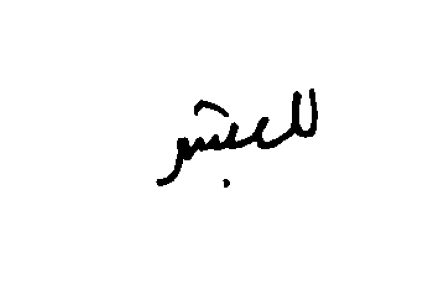 للمبشر